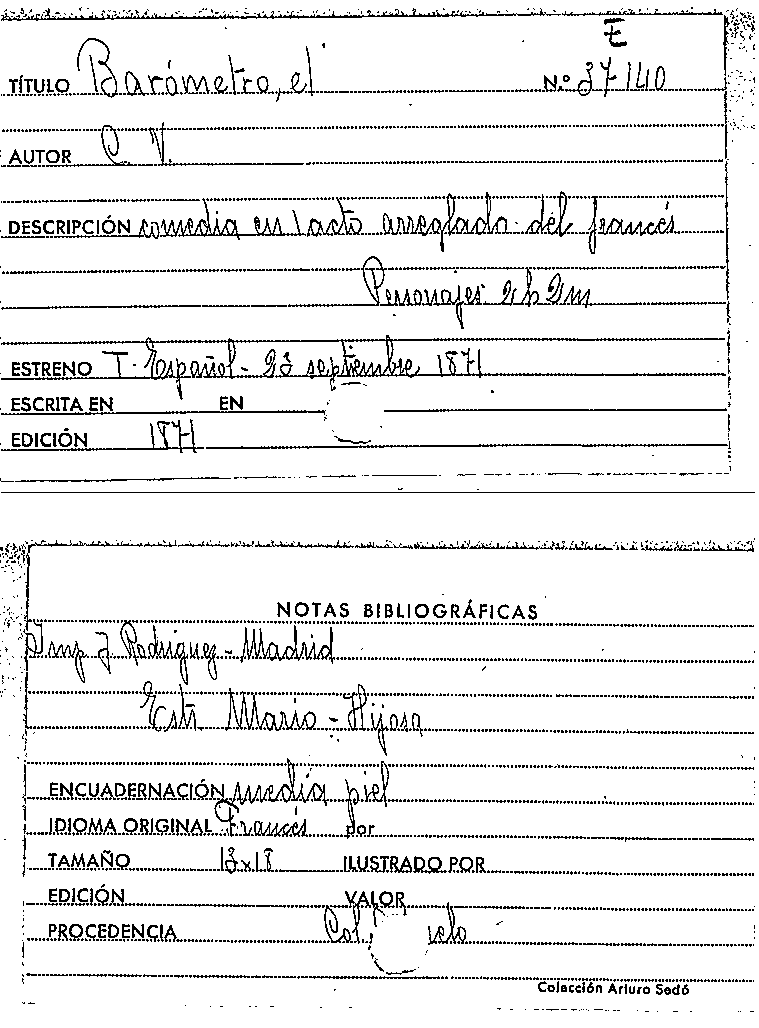 E
TÍTULO Barómetro, el N.º 37140
AUTOR C. V.
DESCRIPCIÓN comedia en 1 acto arreglada del francés
Personajes 2h 2m
ESTRENO T. Español - 23 septiembre 1871
ESCRITA EN EN
EDICIÓN 1871
NOTAS BIBLIOGRÁFICAS
Imp J Rodriguez - Madrid
Estr Mario - Hijosa
ENCUADERNACIÓN media piel
IDIOMA ORIGINAL Francés por
TAMAÑO 13x18 ILUSTRADO POR
EDICIÓN VALOR
PROCEDENCIA Col
Colección Arturo Sedó